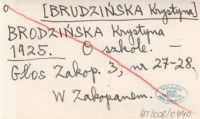 [BRUDZIŃSKA Krystyna]
BRODZIŃSKA Krystyna
1925. O szkole. —
Głos Zakop. 3, nr 27-28.
W Zakopanem.